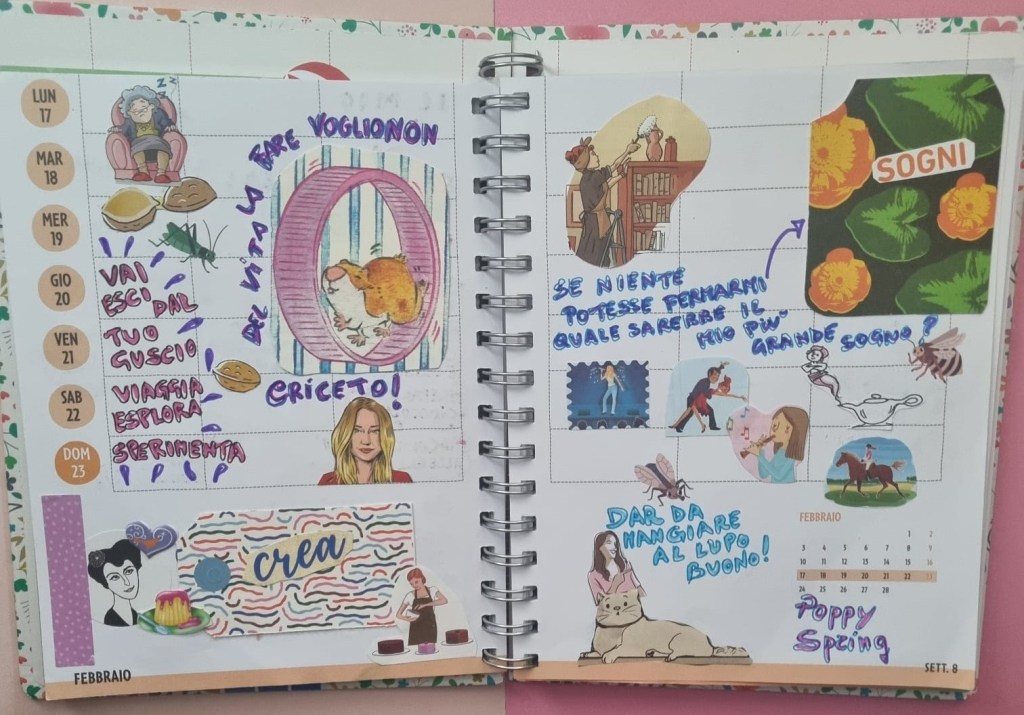 LUN
17
MAR
18
MER
19
GIO
20
VEN
21
SAB
22
DOM
23
ZZZ
VAI
ESCI DAL
TUO
GUSCIO
VIAGGIA
ESPLORA
SPERIMENTA
VOGLIONON
FARE
LA
VITA
DEL
CRICETO!
crea
FEBBRAIO
SOGNI
SE NIENTE
POTESSE FERMARMI
QUALE SAREBBE IL
MIO PIU'
GRANDE SOGNO?
DAR DA
MANGIARE
AL LUPO
BUONO!
FEBBRAIO
1 2
3 4 5 6 7 8 9
10 11 12 13 14 15 16
17 18 19 20 21 22 23
24 25 26 27 28
Poppy
Spring
SETT. 8